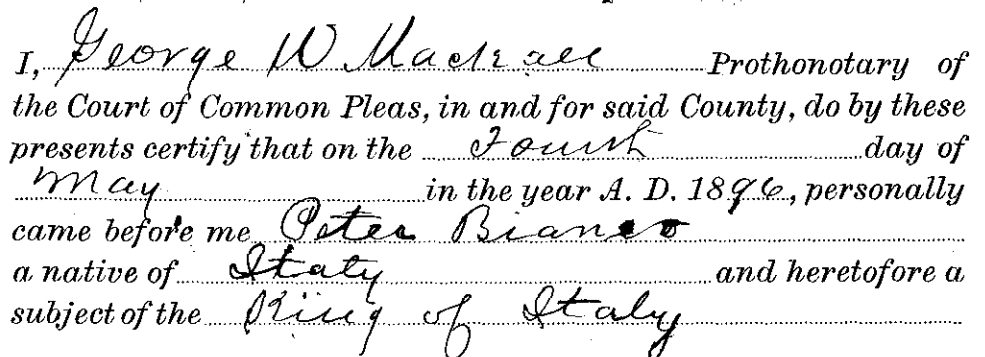 I, George W Mackrall Prothonotary of
the Court of Common Pleas, in and for said County, do by these
presents certify that on the Fourth day of
May in the year A. D. 1896, personally
came before me Peter Bianco
a native of Italy and heretofore a
subject of the King of Italy